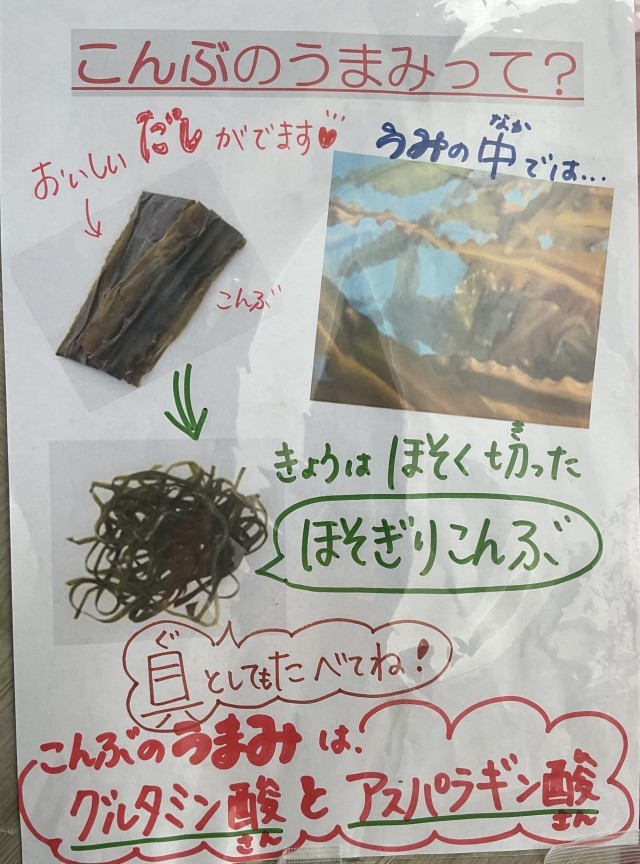 こんぶのうまみって?
おいしい だし がでます♥
こんぶ
うみの中では…
なか
きょうは ほそく 切った
き
ほそぎりこんぶ
ぐ
具としてもたべてね!
こんぶのうまみ は、
グルタミン酸と アスパラギン酸
さん さん